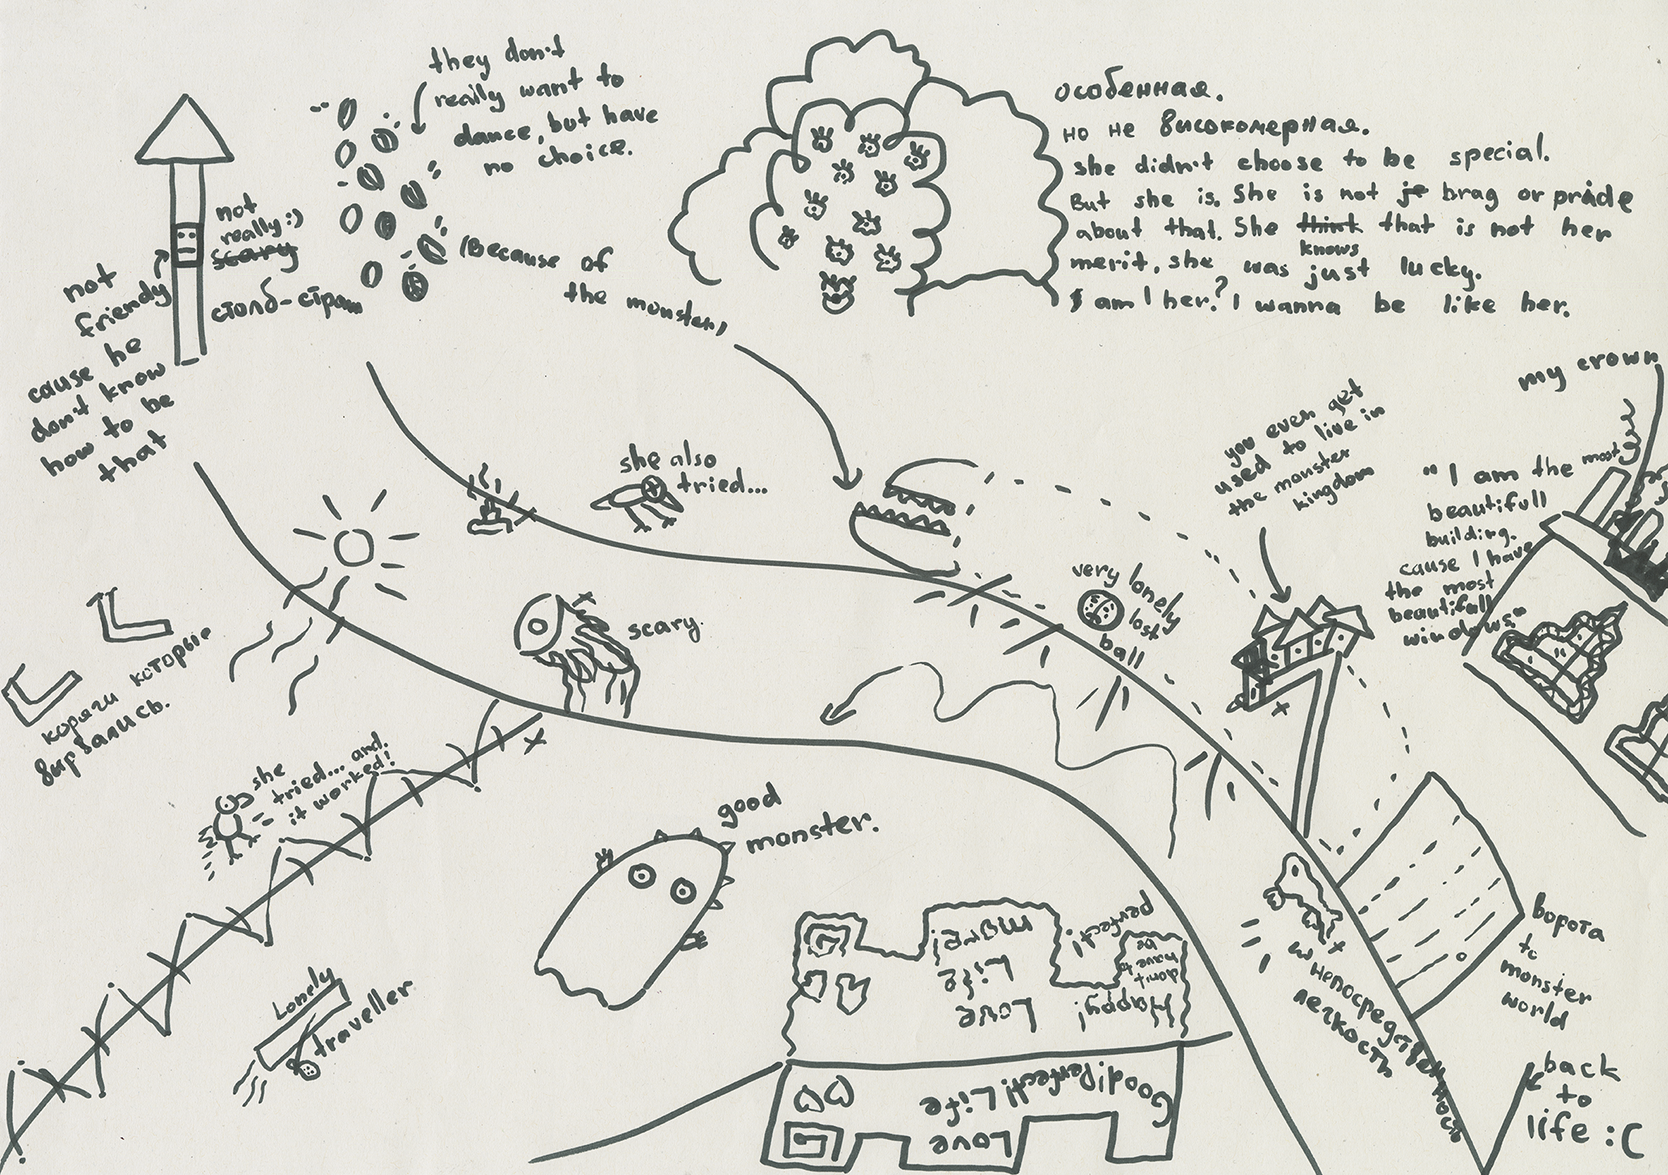 they don't
really want to
dance, but have
no choice.
(Because of
the monster)
особенная.
но не високомерная.
she didn't choose to be special.
But she is. She is not je brag or pride
about that. She think that is not her
knows
merit, she was just lucky.
I am I her? I wanna be like her.
not
really:)
scary
столб-страш
not
friendly
cause he
don't know
how to be
that
my crown
you even get
used to live in
the monster
kingdom
"I am the most
beautifull
building.
cause I have
the most
beautifull
windows."
she also
tried...
very lonely
lost
ball
scary.
коряги которые
вырвались.
she
tried... and.
it worked!
good
monster.
Lonely
traveller
Love
Life
mamei
Happy!
don't
have to
be
perfect!
Good!Perfect! Life
Love
ворота
to
monster
world
непосредственность
легкость
back
to
life :C